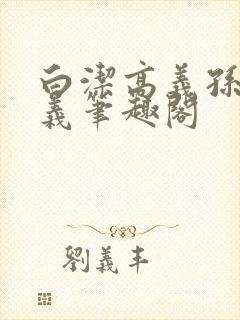 白潔高義孫
義筆趣閣
劉義丰